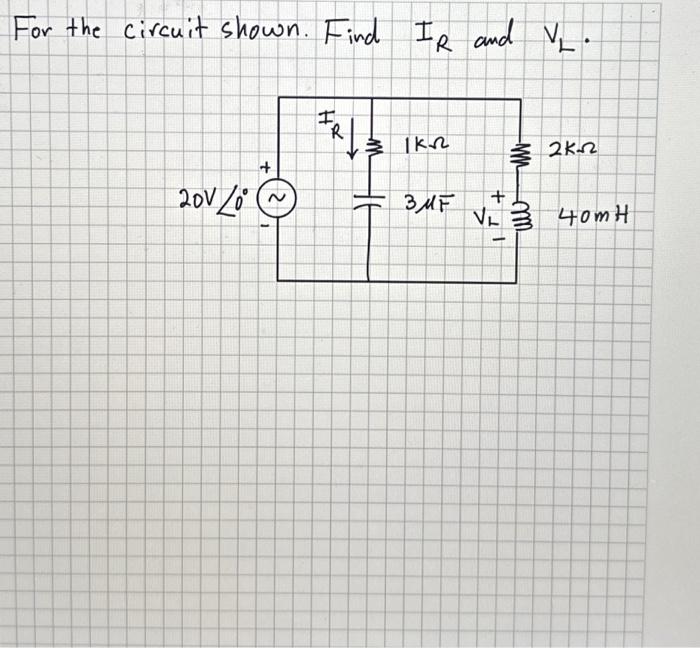 For the circuit shown. Find I_R and V_L.
I_R
1KΩ
2KΩ
+
20V ∠0°
~
3μF
+
V_L
40mH
-
-